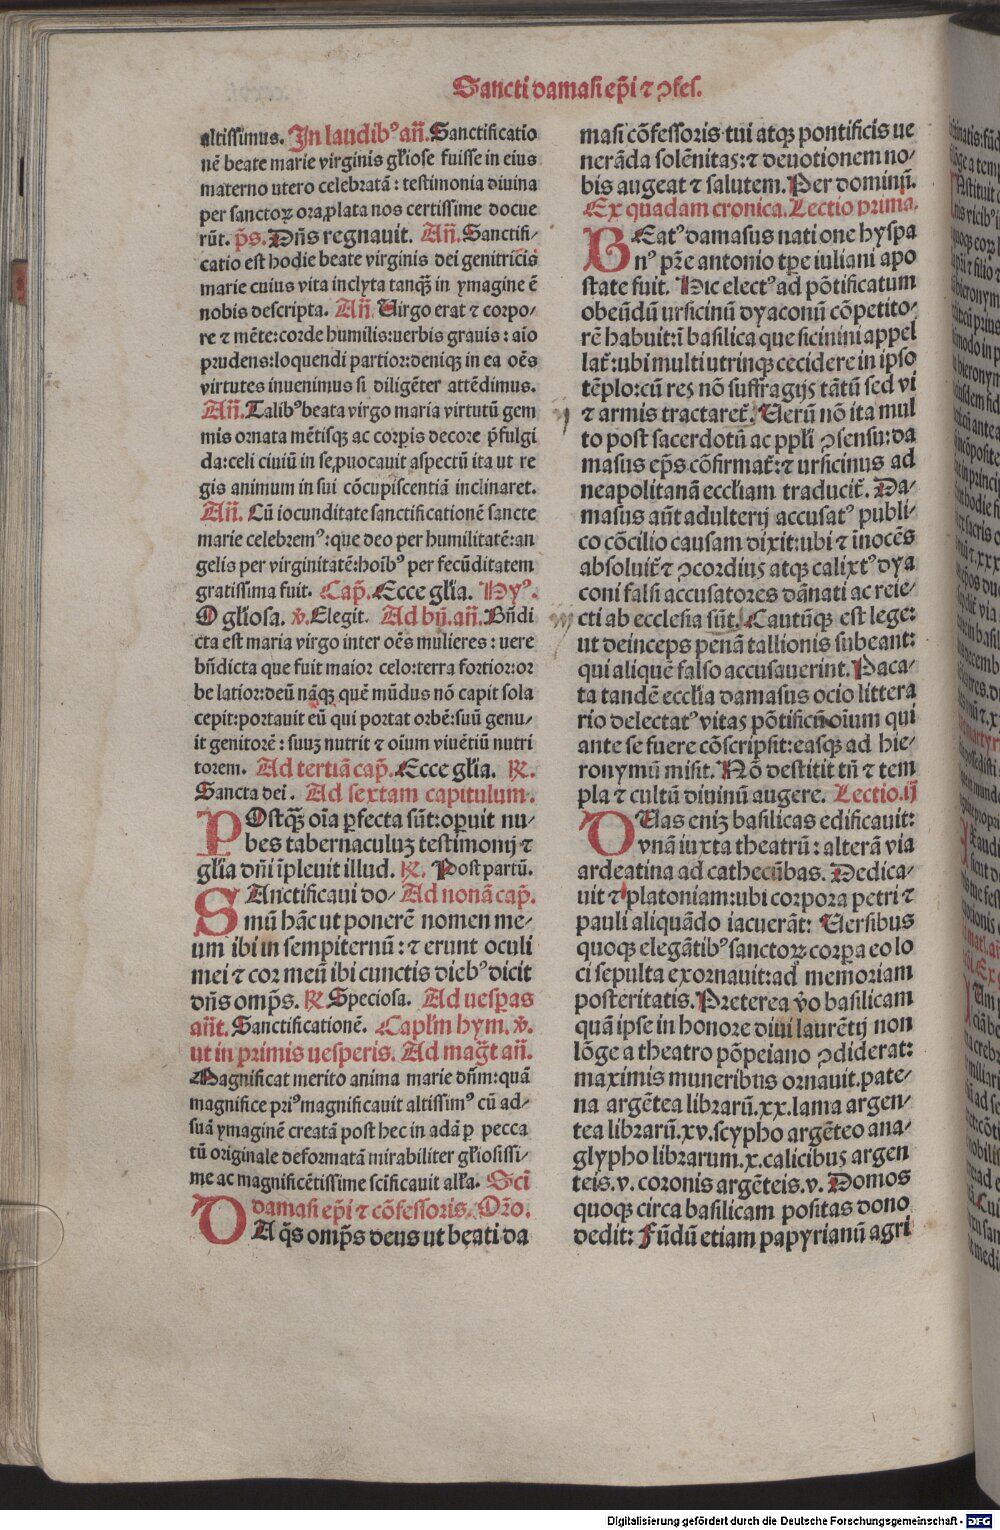 Sancti damasi ep̃i ⁊ ꝯfes.
altissimus. In laudibꝰ añ. Sanctificatio
nẽ beate marie virginis gl̃iose fuisse in eius
materno utero celebratã : testimonia diuina
per sanctoꝝ ora ꝓlata nos certissime docue
rũt. p̃s. Dñs regnauit. Añ. Sanctifi⸗
catio est hodie beate virginis dei genitricis
marie cuius vita inclyta tanqȝ̃ in ymagine ẽ
nobis descripta. Añ. Uirgo erat ⁊ corpo⸗
re ⁊ mẽte: corde humilis: uerbis grauis : aĩo
prudens: loquendi partior: deniqȝ in ea oẽs
virtutes inuenimus si diligẽter attẽdimus.
Añ. Talibꝰ beata virgo maria virtutũ gem
mis ornata mẽtisqȝ ac corꝑis decore p̃fulgi
da: celi ciuiũ in se ꝓuocauit aspectũ ita ut re
gis animum in sui cõcupiscentiã inclinaret.
Añ. Cũ iocunditate sanctificationẽ sancte
marie celebremꝰ: que deo per humilitatẽ: an
gelis per virginitatẽ: hoĩbꝰ per fecũditatem
gratissima fuit. Cap̃. Ecce gl̃ia. Hyꝰ.
O gl̃iosa. v̓. Elegit. Ad bñ. añ. Bñdi
cta est maria virgo inter oẽs mulieres : uere
bñdicta que fuit maior celo: terra fortior: or
be latior: deũ nãqȝ quẽ mũdus nõ capit sola
cepit: portauit eũ qui portat orbẽ: suũ genu⸗
it genitorẽ : suuȝ nutrit ⁊ oĩum viuẽtiũ nutri
torem. Ad tertiã cap̃. Ecce gl̃ia. ℟.
Sancta dei. Ad sextam capitulum.
POstqȝ̃ oĩa ꝑfecta sũt: oꝑuit nu⸗
bes tabernaculuȝ testimonij ⁊
gl̃ia dñi ĩpleuit illud. ℟. Post partũ.
SAnctificaui do⸗ Ad nonã cap̃.
mũ hãc ut ponerẽ nomen me⸗
um ibi in sempiternũ : ⁊ erunt oculi
mei ⁊ cor meũ ibi cunctis diebꝰ dicit
dñs omp̃s. ℟ Speciosa. Ad uesꝑas
añt. Sanctificationẽ. Capl̃m hym. v̓.
ut in primis uesperis. Ad mag̃t añ.
Magnificat merito anima marie dñm: quã
magnifice priꝰ magnificauit altissimꝰ cũ ad⸗
suã ymaginẽ creatã post hec in adã ꝑ pecca
tũ originale deformatã mirabiliter gl̃iosissi⸗
me ac magnificẽtissime scĩficauit all̃a. Scĩ
damasi ep̃i ⁊ cõfessoris. Or̃o.
DA q̃s omp̃s deus ut beati da
masi cõfessoris tui atqȝ pontificis ue
nerãda solẽnitas: ⁊ deuotionem no⸗
bis augeat ⁊ salutem. Per dominũ.
Ex quadam cronica. Lectio prima.
BEatꝰ damasus nati one hyspa
nꝰ pr̃e antonio tꝑe iuliani apo
state fuit. Hic electꝰ ad põtificatum
obeũdũ ursicinũ dyaconũ cõpetito⸗
rẽ habuit: ĩ basilica que sicinini appel
lat̃: ubi multi utrinqȝ cecidere in ipso
tẽplo: cũ res nõ suffragijs tãtũ sed vi
⁊ armis tractaret̃. Uerũ nõ ita mul
to post sacerdotũ ac ppl̃i ꝯsensu: da
masus ep̃s cõfirmat̃: ⁊ ursicinus ad
neapolitanã eccl̃iam traducit̃. Da⸗
masus aũt adulterij accusatꝰ publi⸗
co cõcilio causam dixit: ubi ⁊ ĩnocẽs
absoluit̃ ⁊ ꝯcordius atqȝ calixtꝰ dya
coni falsi accusatores dãnati ac reie⸗
cti ab ecclesia sũt. Cautũqȝ est lege:
ut deinceps penã tallionis subeant:
qui aliquẽ falso accusauerint. Paca⸗
ta tandẽ eccl̃ia damasus ocio littera
rio delectatꝰ vitas põtificũ oĩum qui
ante se fuere cõscripsit: easqȝ ad hie⸗
ronymũ misit. Nõ destitit tñ ⁊ tem
pla ⁊ cultũ diuinũ augere. Lectio. ij
DUas eniȝ basilicas edificauit:
vnã iuxta theatrũ : alterã via
ardeatina ad cathecũbas. Dedica⸗
uit ⁊ platoniam: ubi corpora petri ⁊
pauli aliquãdo iacuerãt: Uersibus
quoqȝ elegãtibꝰ sanctoꝝ corꝑa eo lo
ci sepulta exornauit: ad memoriam
posteritatis. Preterea v̓o basilicam
quã ipse in honore diui laurẽtij non
lõge a theatro põpeiano ꝯdiderat:
maximis muneribus ornauit. pate⸗
na argẽtea librarũ. xx. lama argen⸗
tea librarũ. xv. scypho argẽteo ana⸗
glypho librarum. x. calicibus argen
teis. v. coronis argẽteis. v. Domos
quoqȝ circa basilicam positas dono
dedit: Fũdũ etiam papyrianũ agri
Digitalisierung gefördert durch die Deutsche Forschungsgemeinschaft - DFG